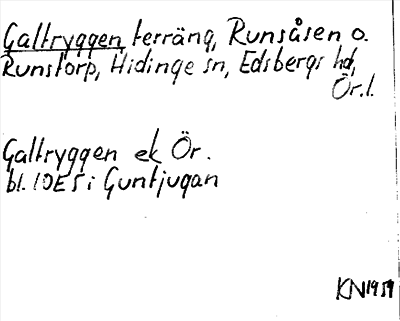 Galtryggen, terräng, Runsåsen o.
Runstorp, Hidinge sn, Edsbergs hd,
Ör.l.
Galtryggen ek Ör.
bl. 10E5i Guntjugan
KN1959